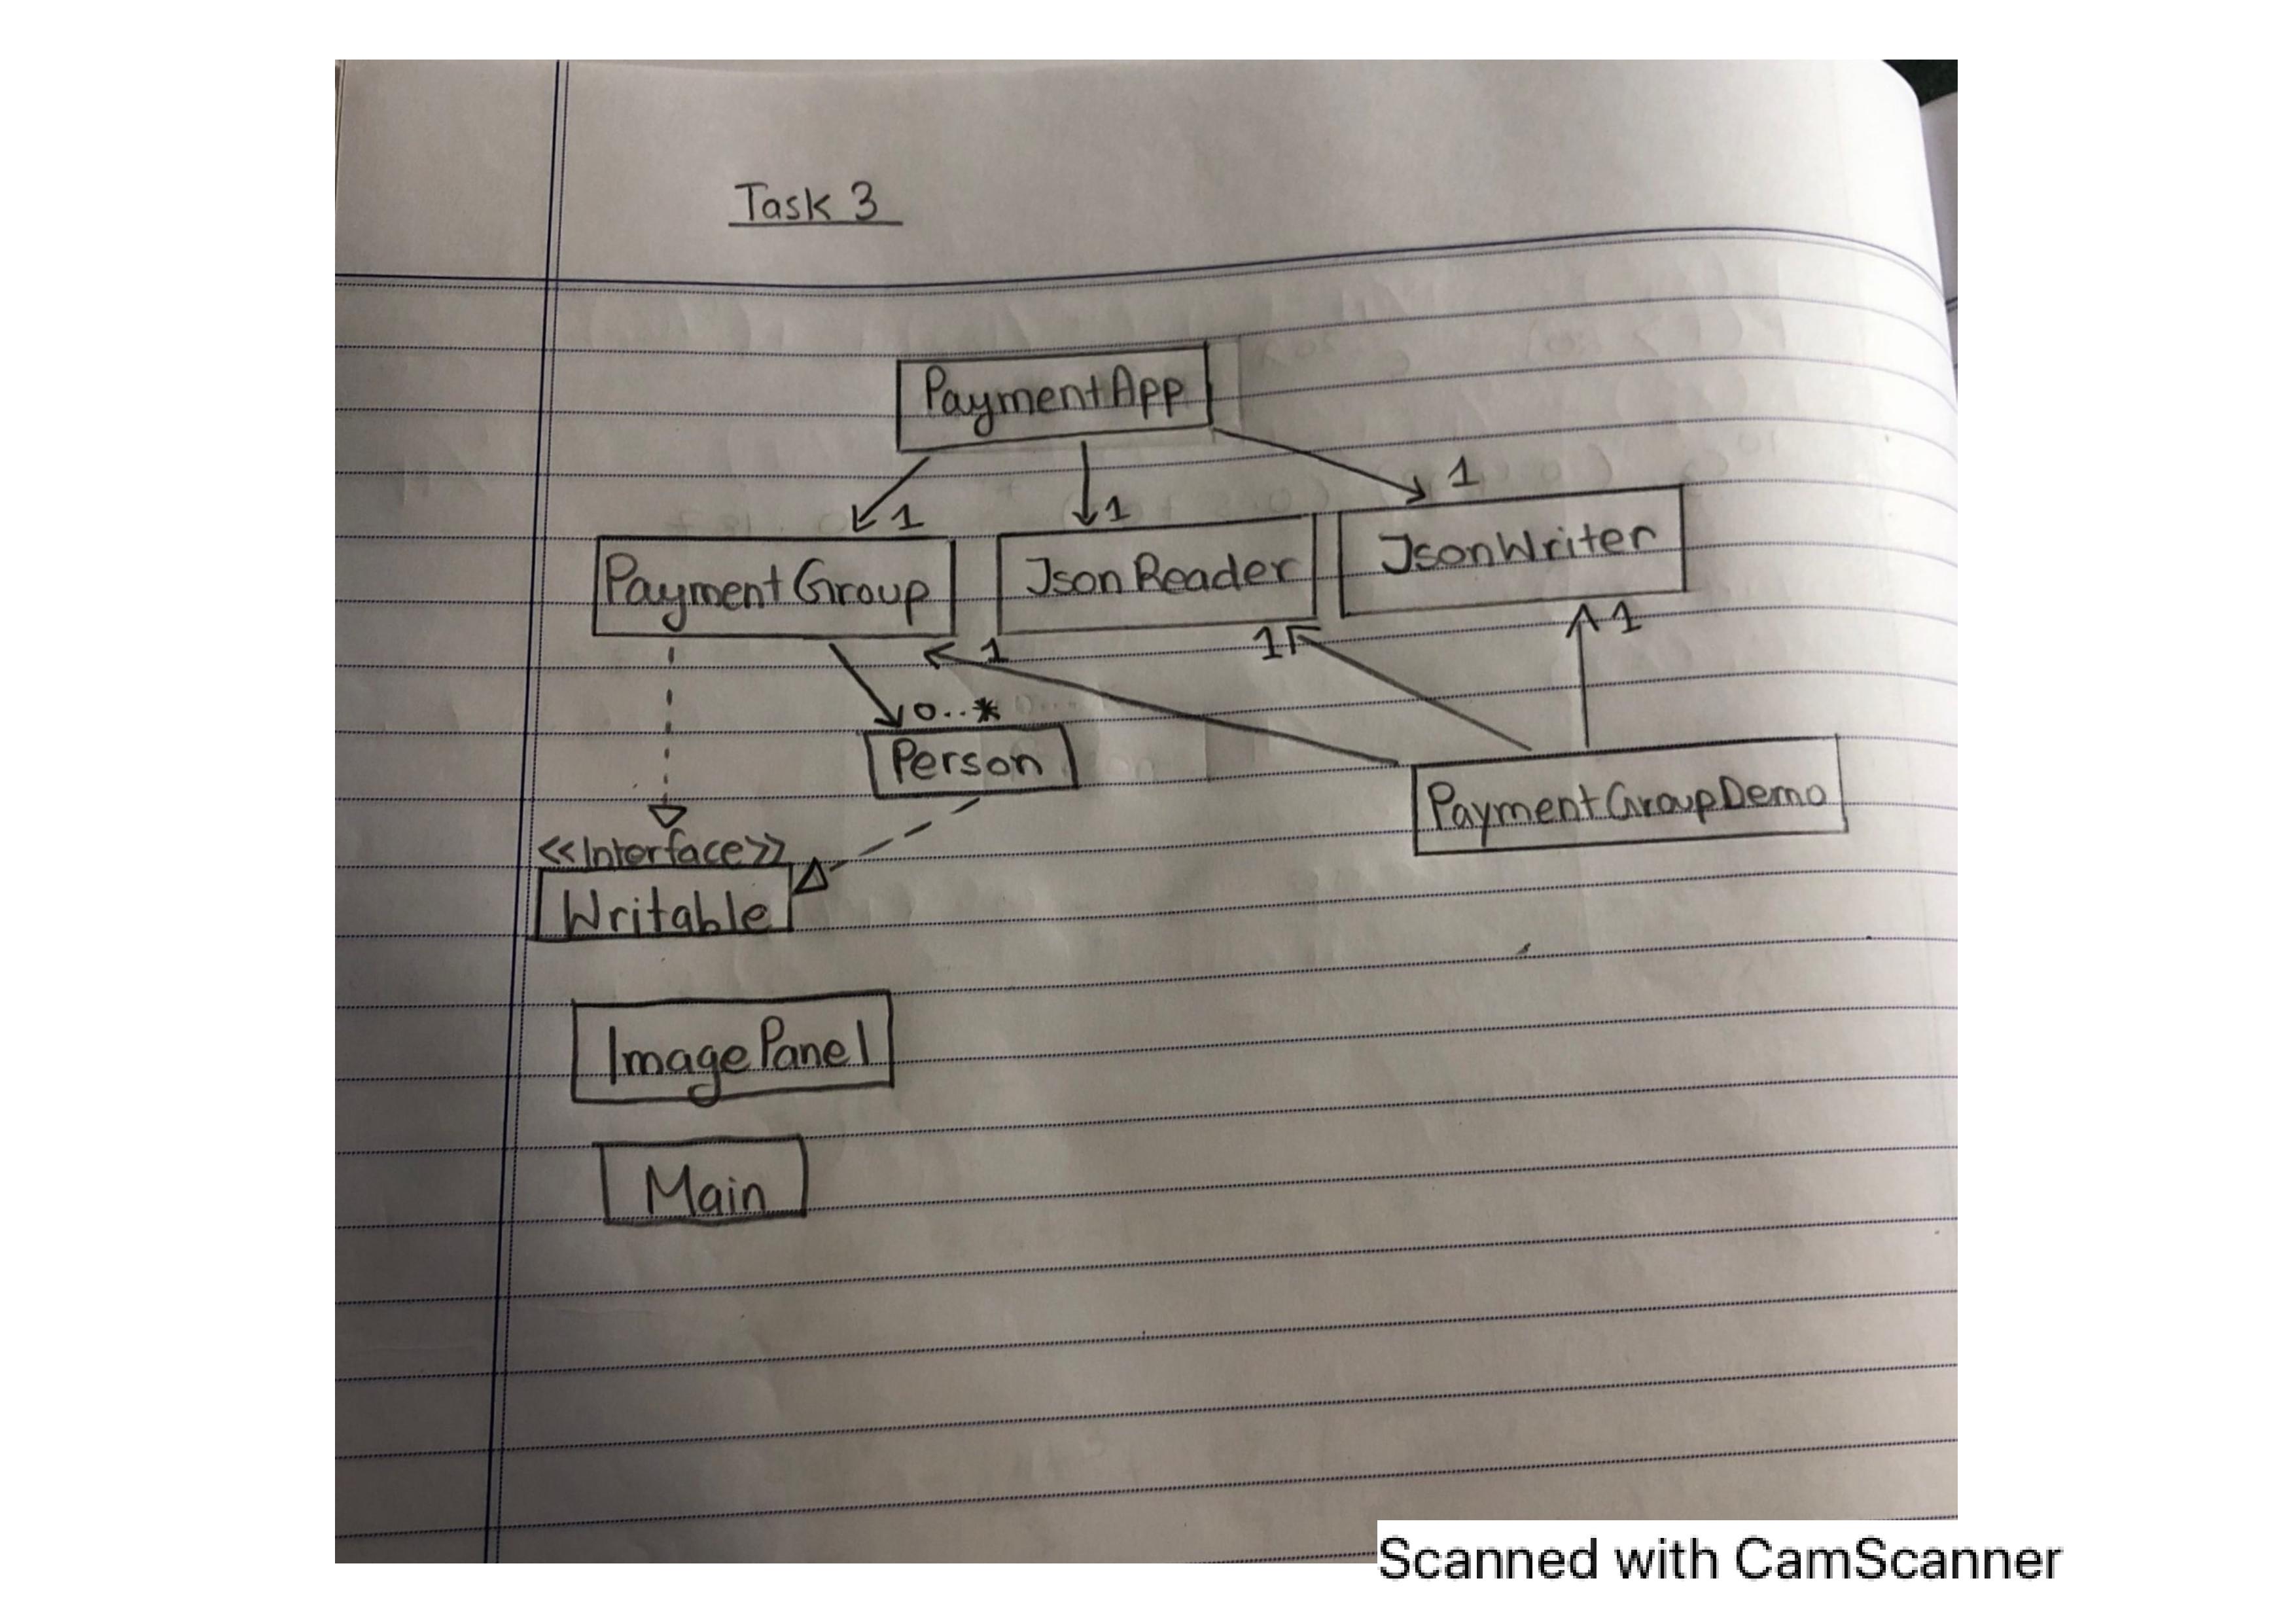 Task 3
PaymentApp
1
1
1
PaymentGroup
JsonReader
JsonWriter
1
1
1
0..*
Person
PaymentGroupDemo
<<Interface>>
Writable
ImagePanel
Main
Scanned with CamScanner